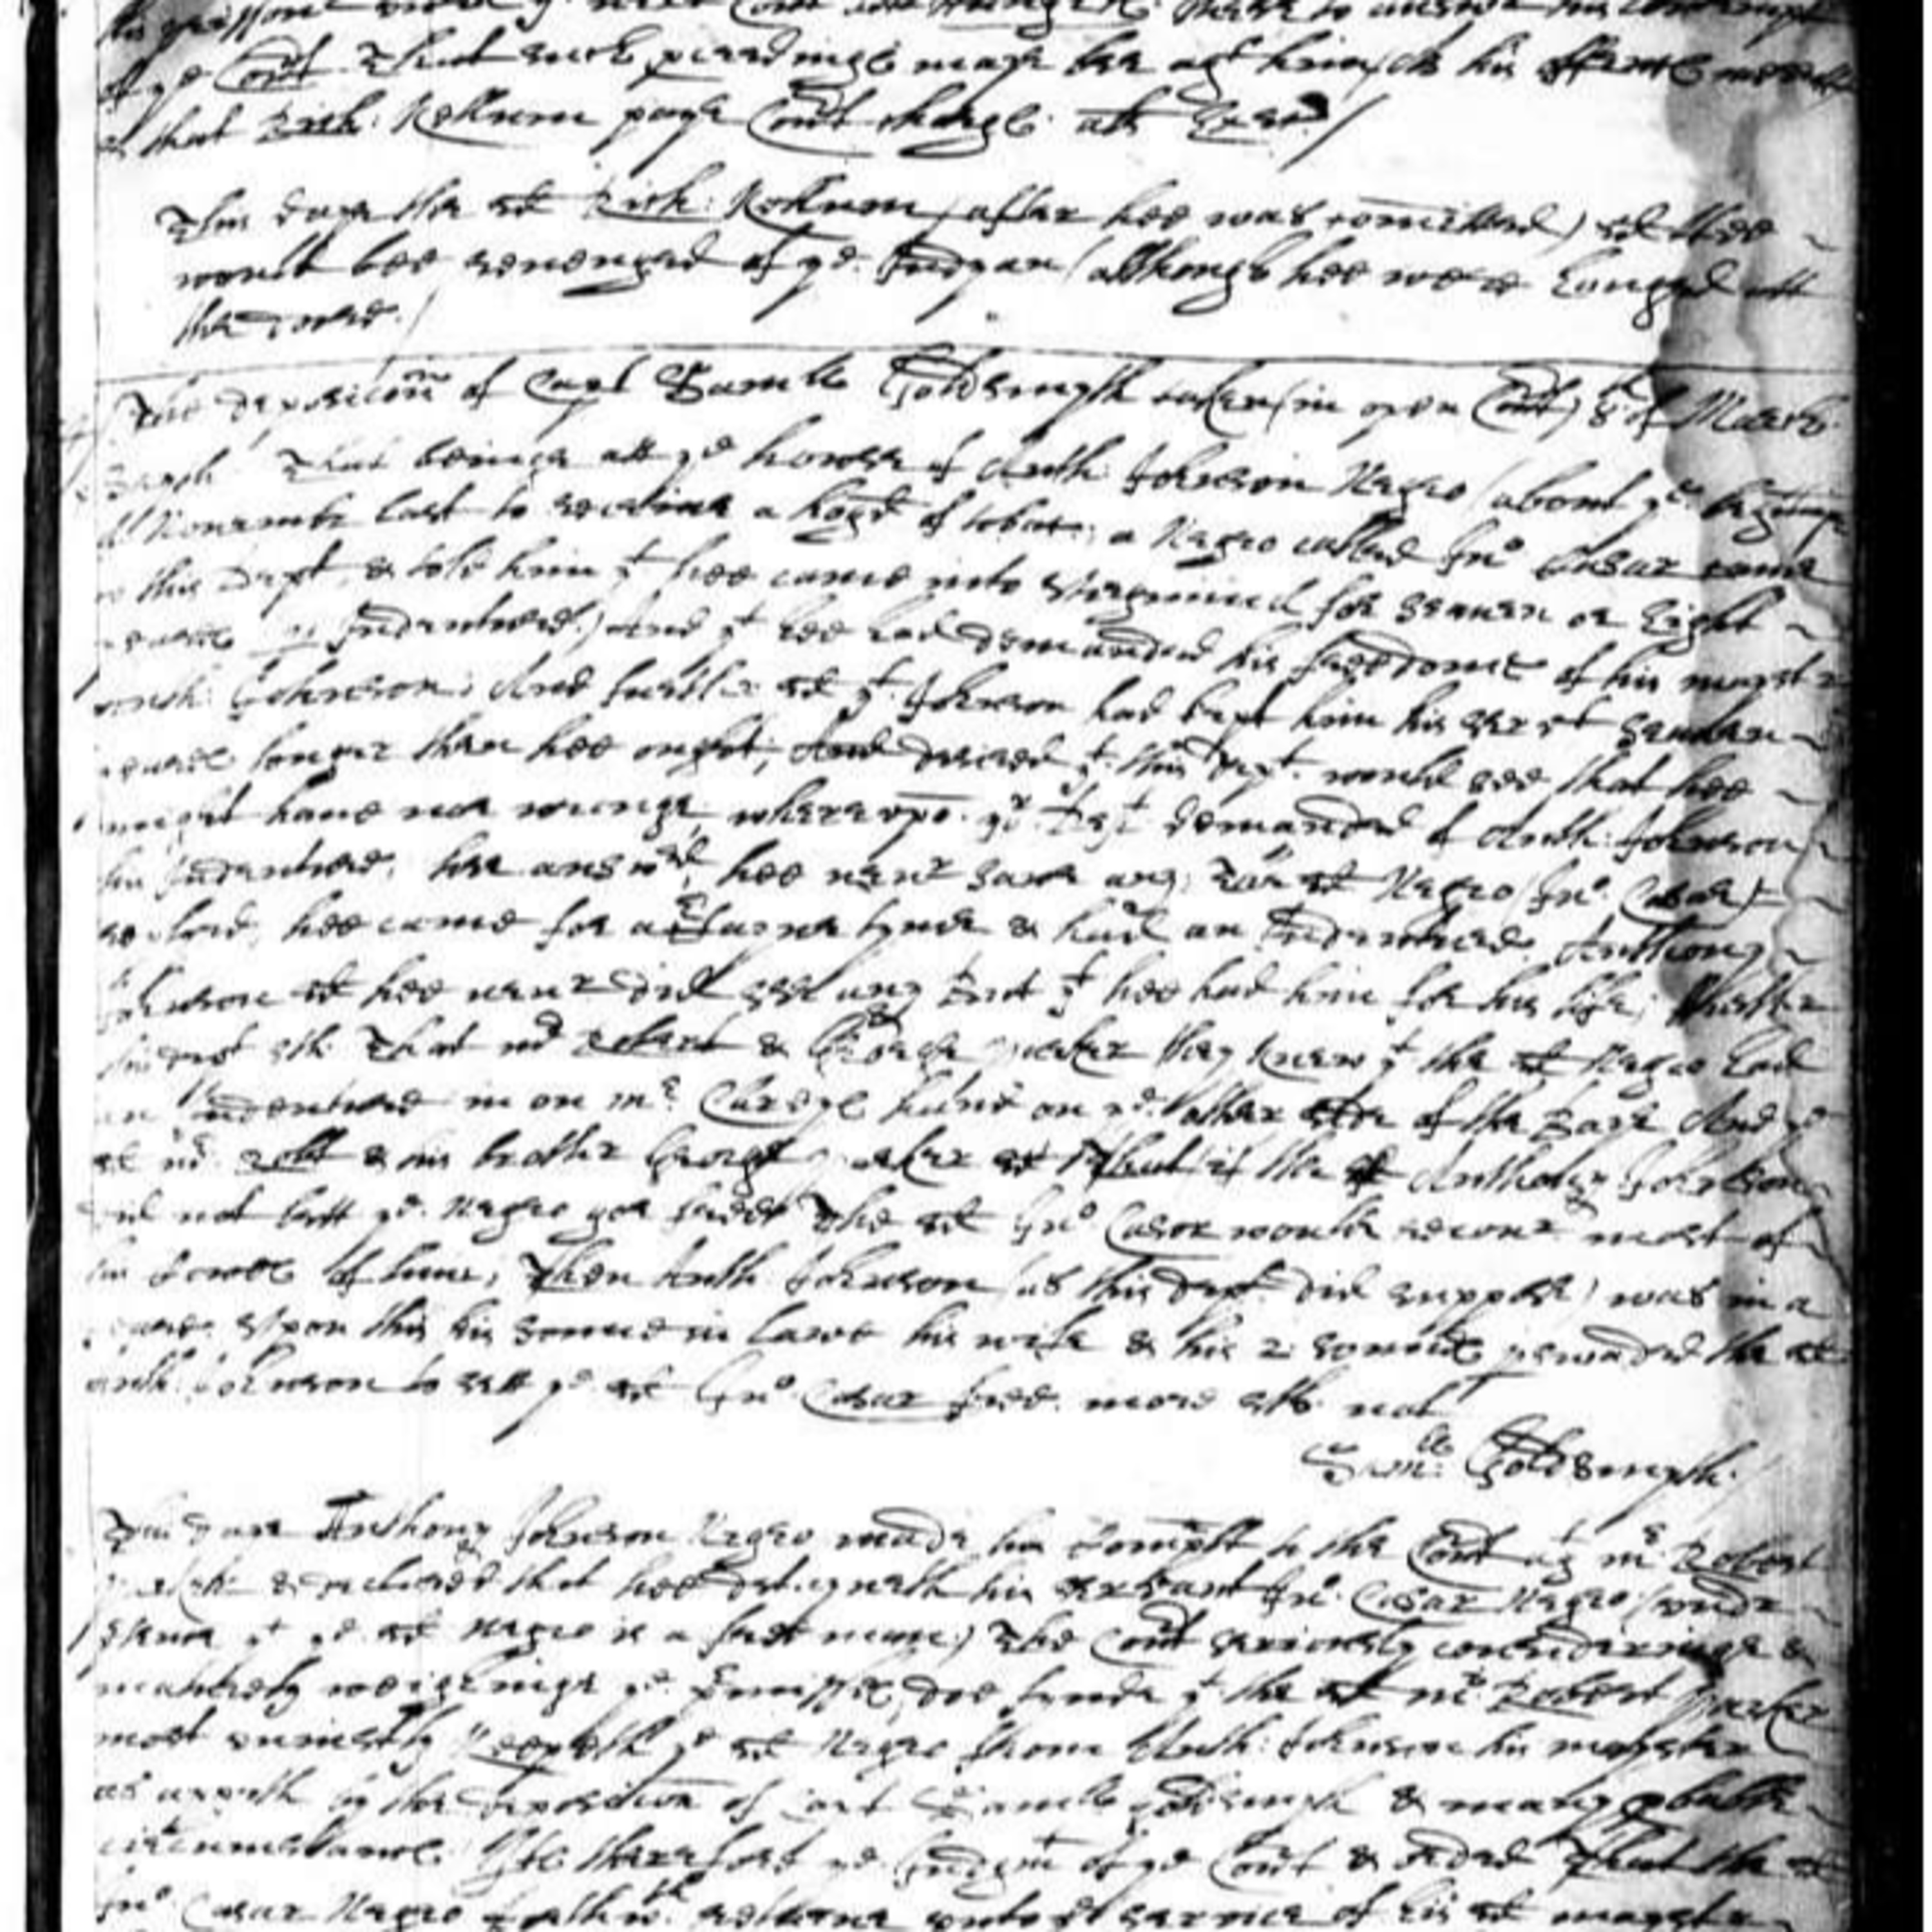 of ye Cort That such pceedings may bee agt him, as his offence
that Rich: Kellum paye Cort charge als Exec/
This daye the sd Rich: Kellum (after hee was comitted) sd thee
would bee revenged of ye Indyan (although hee were hanged att
the dore./
The deposicon of Capt Samll Goldsmyth taken (in open Cort) 8th of March
Sayth That beinge att ye howse of Anth: Johnson Negro (about ye beginninge
of November last to receive a hogd of tobac: a Negro called Jno Casar came
to this Dept, & told him yt hee came into Virginia for seaven or Eight
yeares Indenture) And yt hee had demanded his freedome of his maystr
Anth: Johnson; And further sd yt Johnson had kept him his servt seaven
yeares longer than hee ought; And desired yt this dept would see that hee
might have noe wronge, whereupo ye Dept demanded of Anth: Johnson
his Indenture, hee answrd, hee never sawe any, The sd Negro (Jno Casar)
replyed, hee came for a certayne tyme & had an Indenture Anthony
Johnson sd hee never did see any But yt hee had him for his life; Further
this dept sth That mr Robert & George Parker they knew yt the sd Negro had
an Indenture in on Mr Carye hund on ye other side of the Baye And ye
sd mr Robt & his brother George Parker sd That if the sd Anthony Johnson
did not lett ye Negro goe free The sd Jno Casor would recover most of
his Cowes of him, Then Anth Johnson (as this dept did suppose) was in a
feare. Upon this his Sonne in lawe his wife & his 2 sonnes pswaded the sd
Anth: Johnson to sett ye sd Jno Casar free. more sth not
Samll Goldsmyth.
This daye Anthony Johnson Negro made his complt to the Cort agt mr Robert
Parker & declared that hee detayneth his servant Jno Casar Negro (under
ptence yt ye sd Negro is a free man) The Cort seriously consideringe &
maturely weighinge ye pmisses doe fynde yt the sd mr Robert Parker
most unjustly keepeth ye sd Negro from Anth: Johnson his mayster
as appeth by the deposicon of Capt Samll Goldsmyth & many pbable
circumstances. It is therefore ye Judgmt of ye Cort & ordered That the sd
Jno Casar Negro forthwth returne unto ye service of his sd mayster